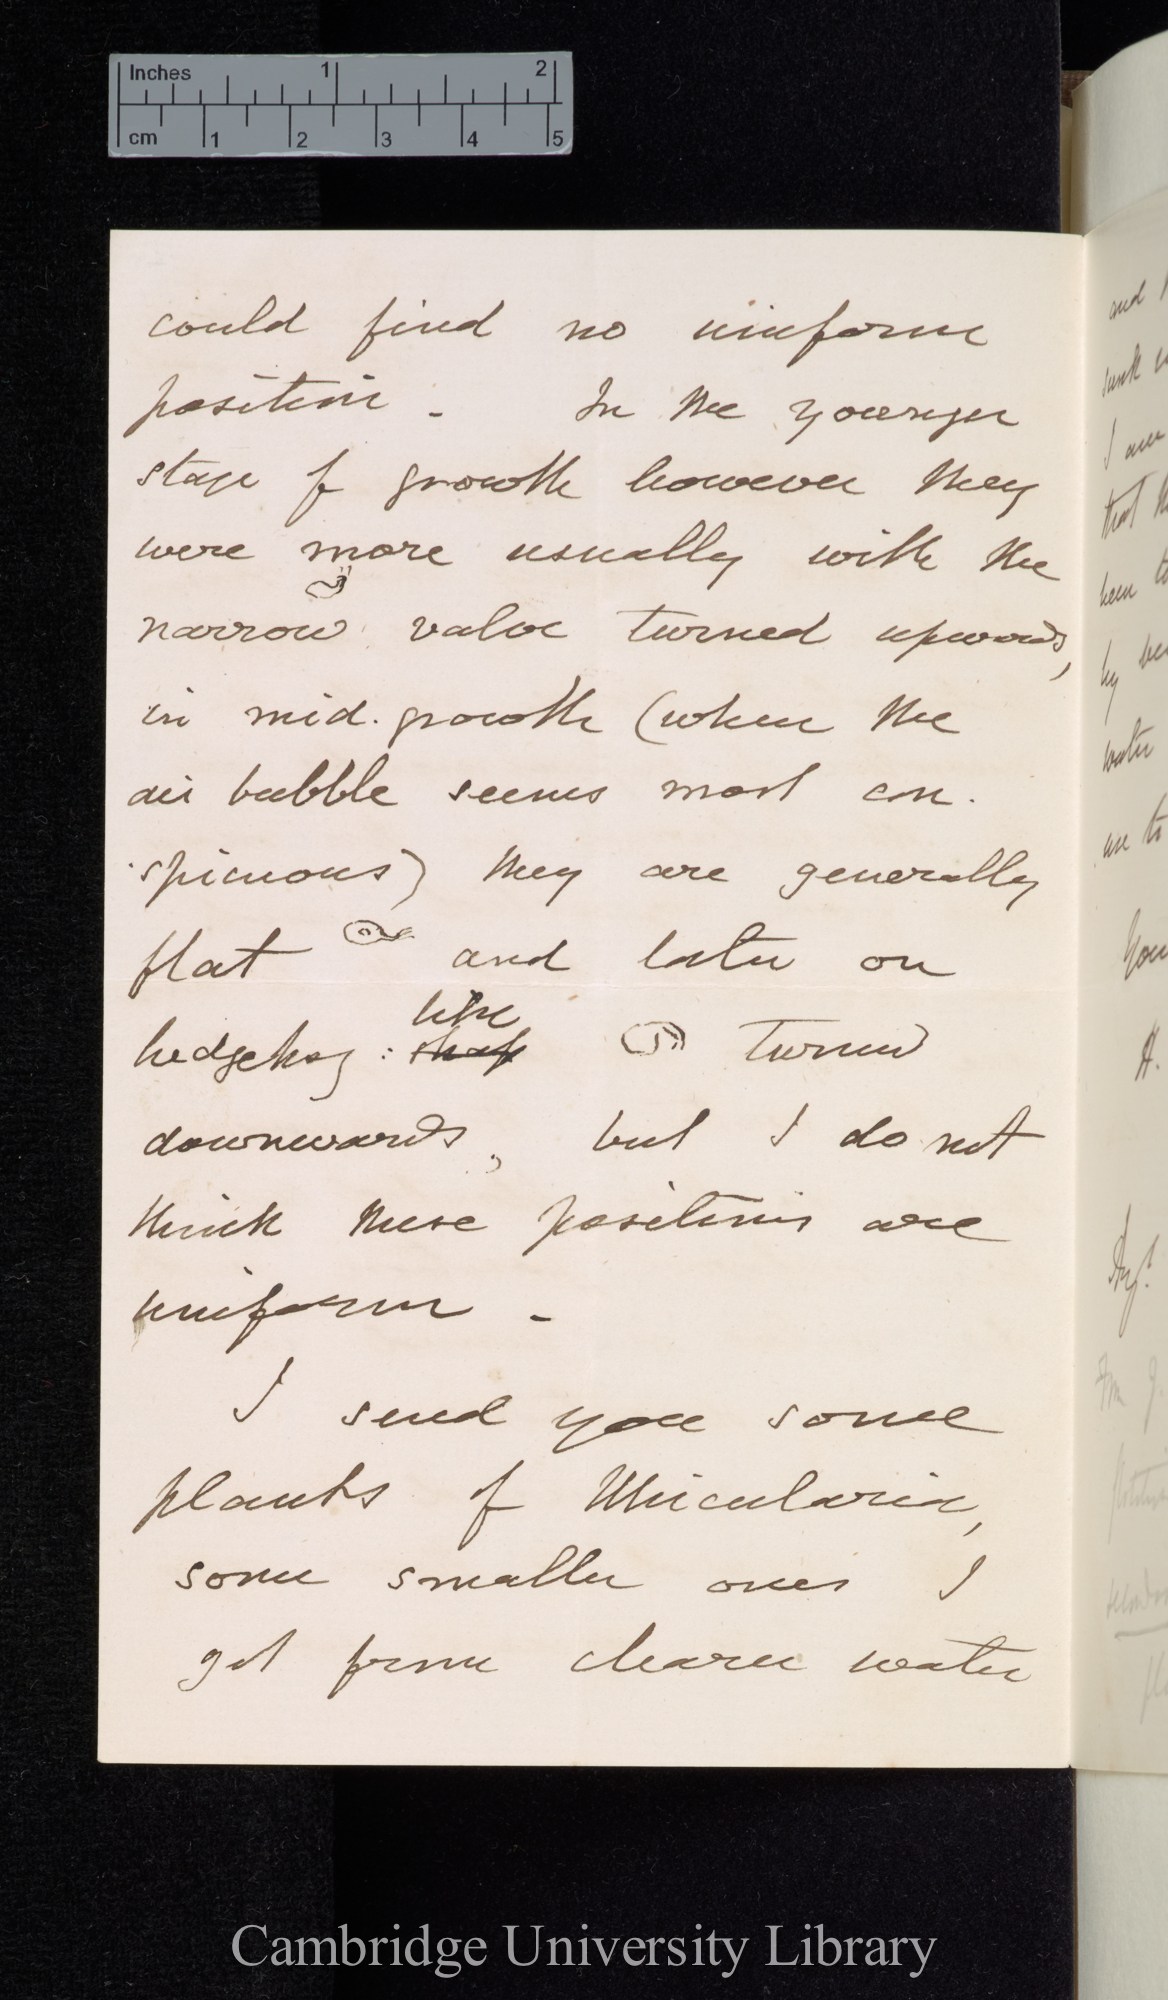 Inches 1 2
cm 1 2 3 4 5
could find no uniform
position – In the younger
stage of growth however they
were more usually with the
narrow valve turned upwards,
in mid-growth (when the
air bubble seems most con-
-spicuous) they are generally
flat and later on
like
hedgehog: shap turned
downwards, but I do not
think these positions are
uniform –
I send you some
plants of Utricularia,
some smaller ones I
got from clearer water
and
sunk
I am
that
been to
by
water
are to
You
H.
Cambridge University Library